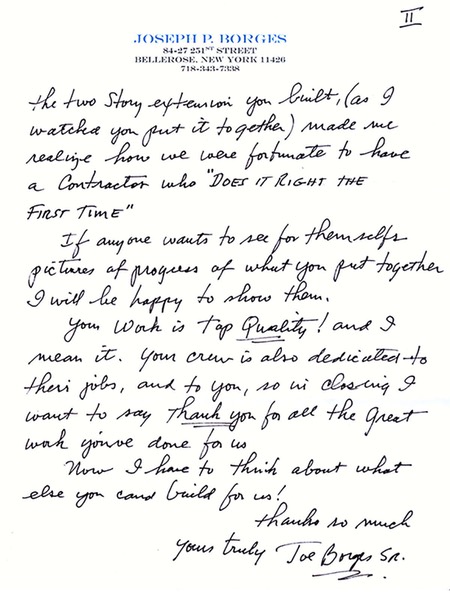 II
JOSEPH P. BORGES
84-27 251ST STREET
BELLEROSE, NEW YORK 11426
718-343-7338
the two Story extension you built, (as I
watched you put it together) made me
realize how we were fortunate to have
a Contractor who "DOES IT RIGHT THE
FIRST TIME"
If anyone wants to see for themselfs
pictures of progress of what you put together
I will be happy to show them.
Your Work is Top Quality! and I
mean it. Your crew is also dedicated to
theri jobs, and to you, so in closing I
want to say Thank you for all the Great
work you've done for us
Now I have to think about what
else you can build for us!
thanks so much
yours truly Joe Borges Sr.